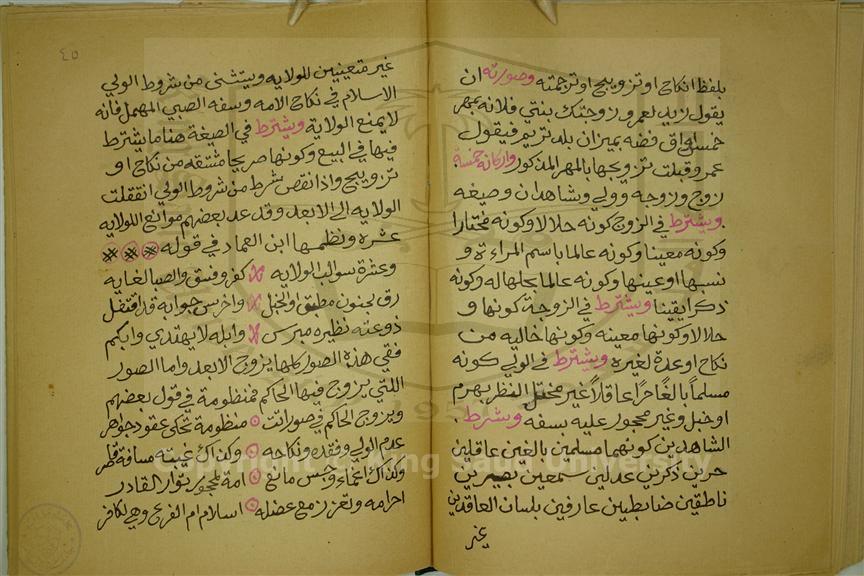 بلفظ انكاح او تزويج او ترجمته وصورته ان
يقول زيد لعمرو زوجتك بنتي فلانه بمهر
خمس اواق فضه بميزان بلد تريم فيقول
عمرو قبلت تزويجها بالمهر المذكور واركانه خمسة
زوج وزوجه وولي وشاهدان وصيغه
ويشترط في الزوج كونه حلالا وكونه مختارا
وكونه معينا وكونه عالما باسم المراءة و
نسبها او عينها وكونه عالما بحلها له وكونه
ذكرا يقينا ويشترط في الزوجة كونها و
حلالا وكونها معينه وكونها خاليه من
نكاح او عدة لغيره ويشترط في الولي كونه
مسلماً بالغاً حراً عاقلاً غير مختل النظر بهرم
او خبل وغير محجور عليه بسفه ويشرط
الشاهدين كونهما مسلمين بالغين عاقلين
حرين ذكرين عدلين سمعين بصيرين
ناطقين ضابطين عارفين بلسان العاقدين
غير
٤٥
غير متعينين للولايه ويستثنى من شروط الولي
الاسلام في نكاح الامه وبسفه الصبي المهمل فانه
لا يمنع الولاية ويشترط في الصيغة هنا ما يشترط
فيها في البيع وكونها صريحا مشتقه من نكاح او
تزويج واذا نقص شرط من شروط الولي انتقلت
الولايه الى الابعد وقد عد بعضهم موانع الولايه
عشره ونظمها ابن العماد في قوله
وعشرة سوالب الولايه كفر وفسق والصبا لغايه
رق جنون مطبق والخبل واخرس جوابه قد اقتفل
ذو عته نظيره مبرسم وابله لا يهتدي وابكم
ففي هذه الصور كلها يزوج الابعد واما الصور
اللتي يزوج فيها الحاكم فمنظومة في قول بعضهم
ويزوج الحاكم في صور اتت منظومة تحكى عقود جواهر
عدم الولي وفقده ونكاحه وكذاك غيبته مسافة قاصر
وكذاك اغماء وحبس مانع امة لمحجور توار القادر
احرامه وتعزز مع عضله اسلام ام الفرع وهي لكافر
Copyright © King Saud University